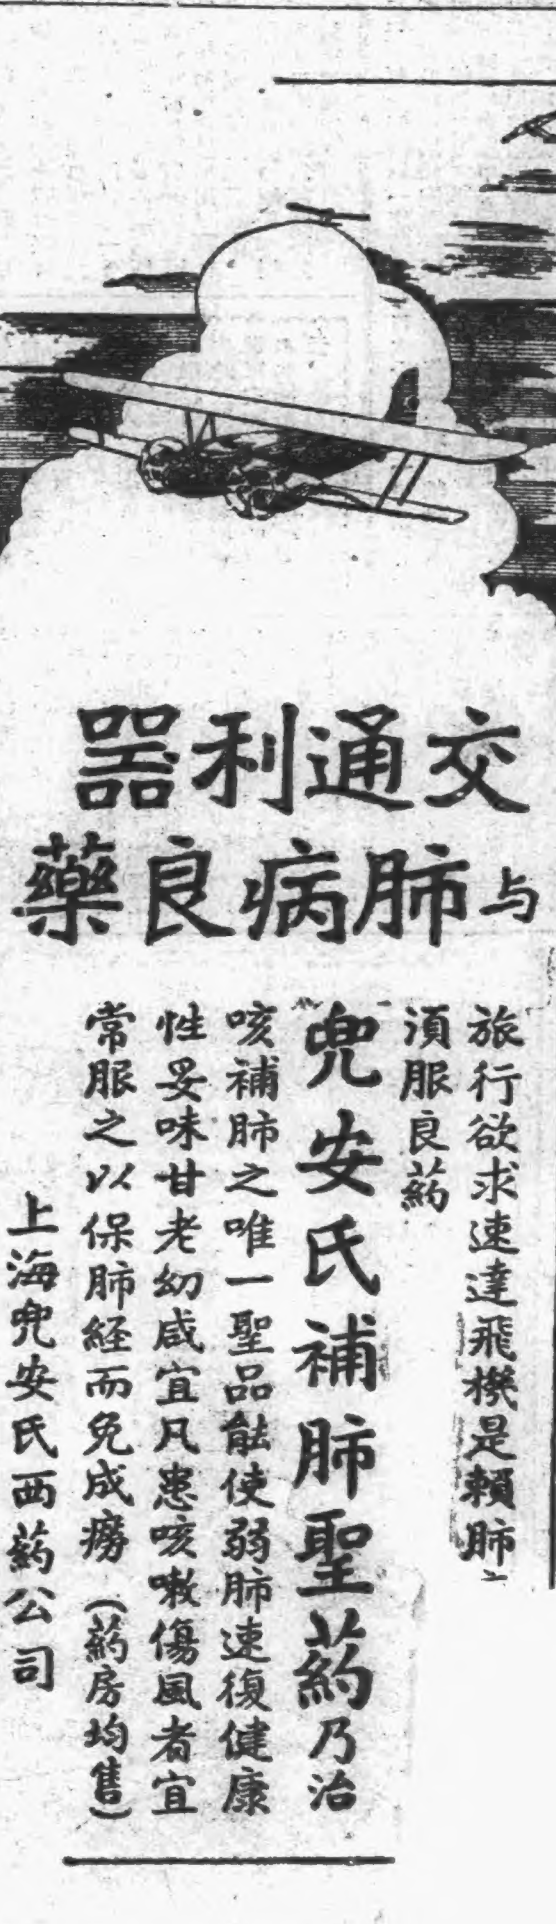 交通利器
与肺病良藥
旅行欲求速達飛機是賴肺
須服良葯
兜安氏補肺聖葯乃治
咳補肺之唯一聖品能使弱肺速復健康
性妥味甘老幼咸宜凡患咳嗽傷風者宜
常服之以保肺経而免成癆（葯房均售）
上海兜安氏西葯公司